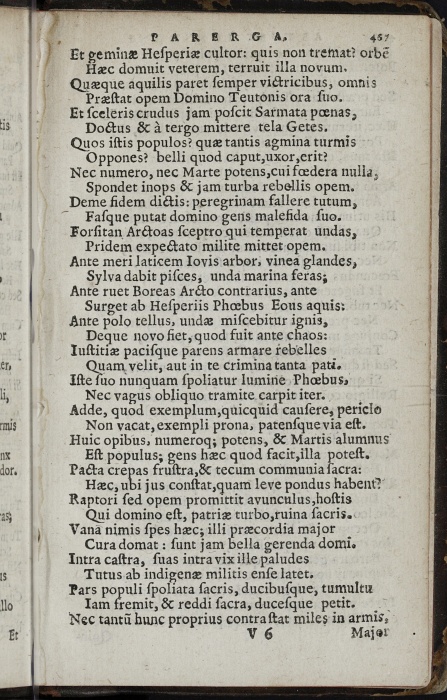 PARERGA. 467
Et geminæ Hesperiæ cultor: quis non tremat? orbē
Hæc domuit veterem, terruit illa novum.
Quæque aquilis paret semper victricibus, omnis
Præstat opem Domino Teutonis ora suo.
Et sceleris crudus jam poscit Sarmata pœnas,
Doctus & à tergo mittere tela Getes.
Quos istis populos? quæ tantis agmina turmis
Oppones? belli quod caput, uxor, erit?
Nec numero, nec Marte potens, cui fœdera nulla,
Spondet inops & jam turba rebellis opem.
Deme fidem dictis: peregrinam fallere tutum,
Fasque putat domino gens malefida suo.
Forsitan Arctoas sceptro qui temperat undas,
Pridem expectato milite mittet opem.
Ante meri laticem Iovis arbor, vinea glandes,
Sylva dabit pisces, unda marina feras;
Ante ruet Boreas Arcto contrarius, ante
Surget ab Hesperiis Phœbus Eous aquis:
Ante polo tellus, undæ miscebitur ignis,
Deque novo fiet, quod fuit ante chaos:
Iustitiæ pacisque parens armare rebelles
Quam velit, aut in te crimina tanta pati.
Iste suo nunquam spoliatur lumine Phœbus,
Nec vagus obliquo tramite carpit iter.
Adde, quod exemplum, quicquid causere, periclo
Non vacat, exempli prona, patensque via est.
Huic opibus, numeroq; potens, & Martis alumnus
Est populus; gens hæc quod facit, illa potest.
Pacta crepas frustra, & tecum communia sacra:
Hæc, ubi jus constat, quam leve pondus habent?
Raptori sed opem promittit avunculus, hostis
Qui domino est, patriæ turbo, ruina sacris.
Vana nimis spes hæc; illi præcordia major
Cura domat: sunt jam bella gerenda domi.
Intra castra, suas intra vix ille paludes
Tutus ab indigenæ militis ense latet.
Pars populi spoliata sacris, ducibusque, tumultu
Iam fremit, & reddi sacra, ducesque petit.
Nec tantū hunc proprius contrastat miles in armis,
V 6 Major
tis
or
er,
li,
rmis
nx
dor.
ras;
us
llo
Et